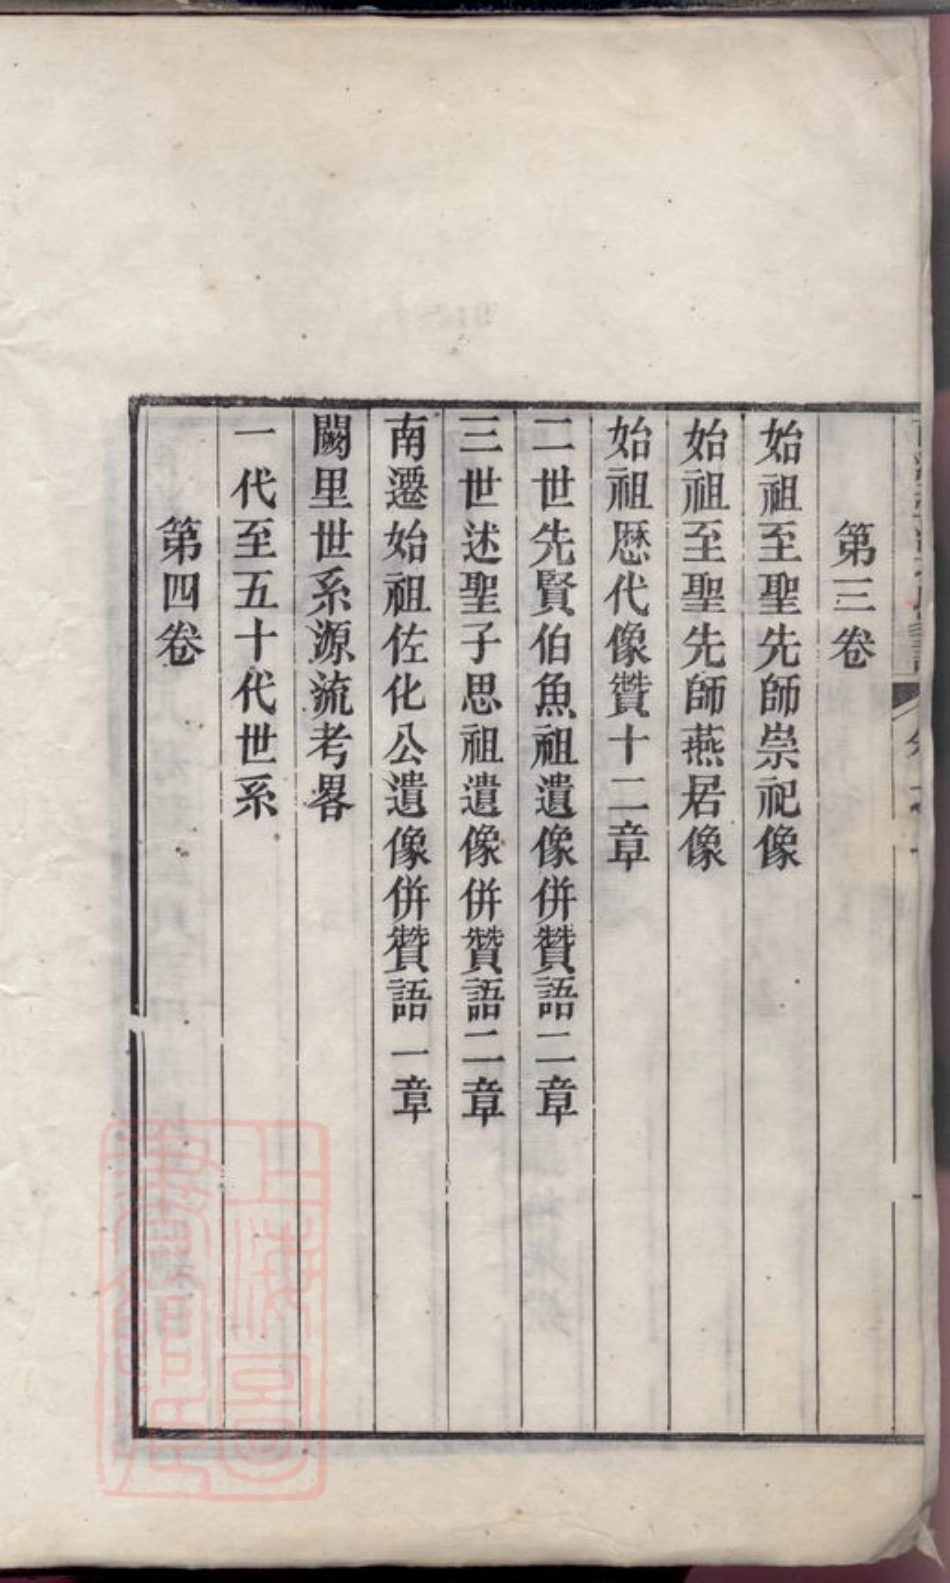 第三卷
始祖至聖先師崇祀像
始祖至聖先師燕居像
始祖歷代像贊十二章
二世先賢伯魚祖遺像併贊語二章
三世述聖子思祖遺像併贊語二章
南遷始祖佐化公遺像併贊語一章
闕里世系源流考畧
一代至五十代世系
第四卷
上海圖
書館藏